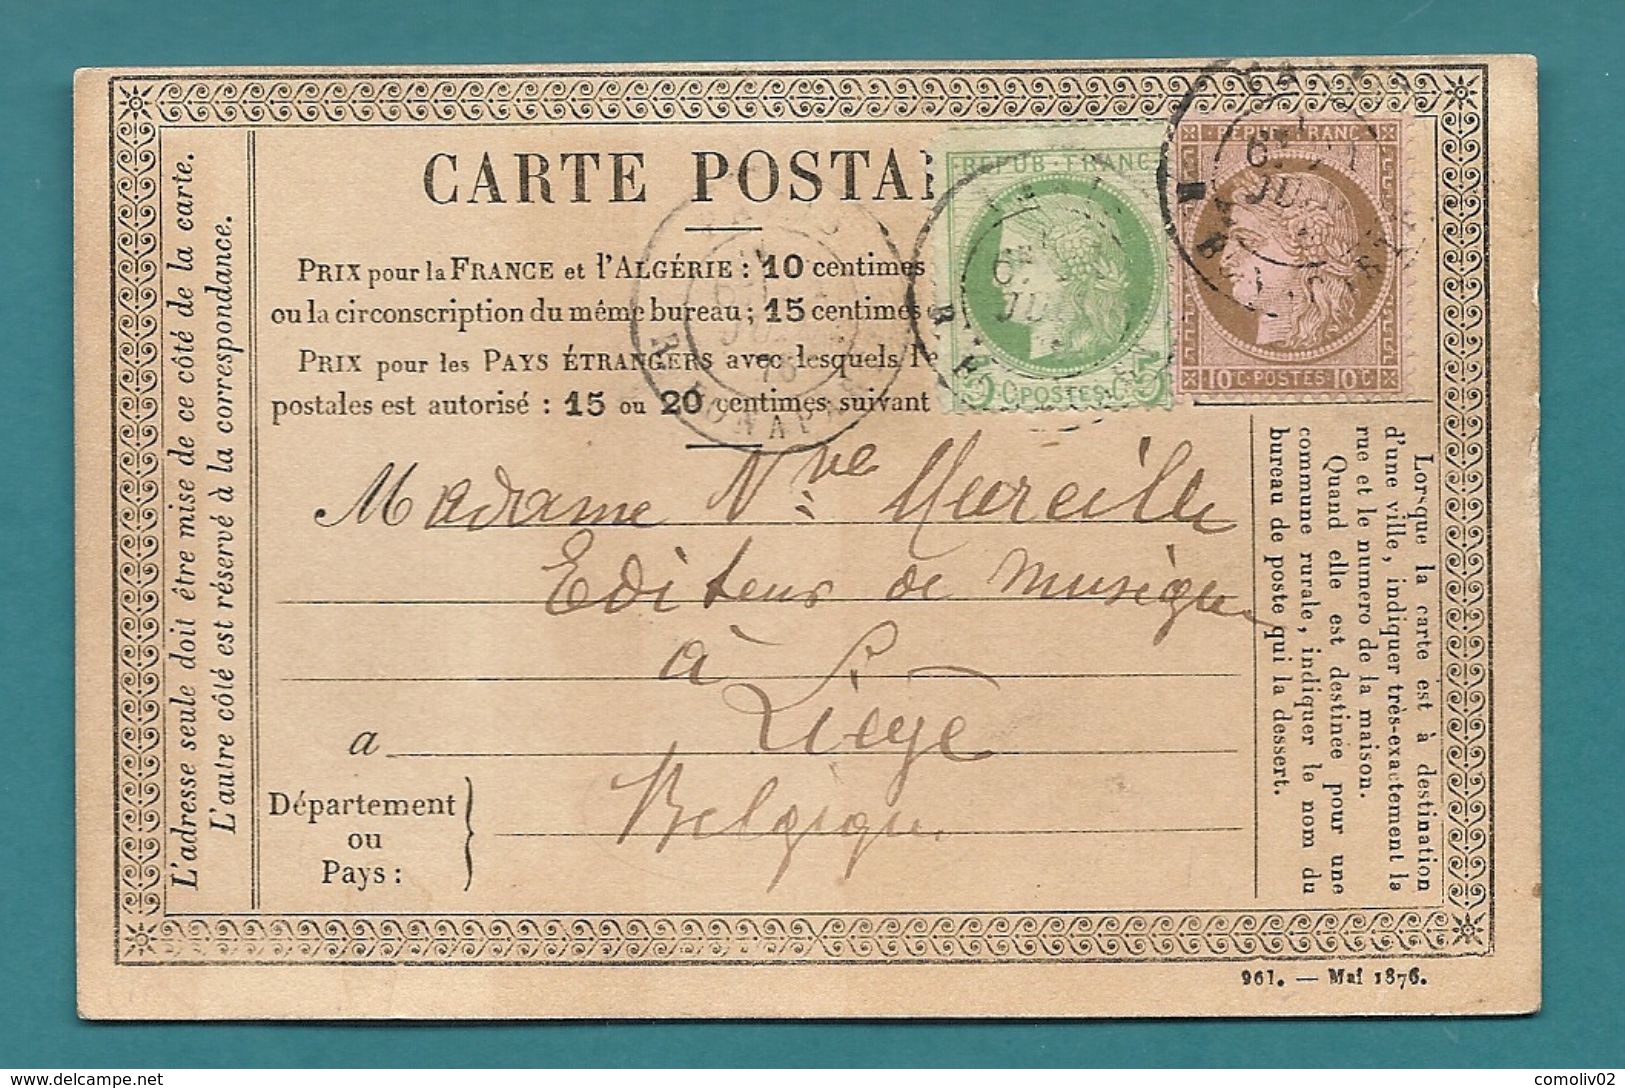 CARTE POSTA
PRIX pour la FRANCE et l'ALGÉRIE : 10 centimes
ou la circonscription du même bureau ; 15 centimes
PRIX pour les PAYS ÉTRANGERS avec lesquels l'é
postales est autorisé : 15 ou 20 centimes suivant
REPUB · FRANC
5 C · POSTES · C 5
REPUB · FRANC
10 C · POSTES · 10 C
R. BONAPARTE
Madame Nve Mureille
Editeur de musique
à
a Liège
Département
ou
Pays :
Belgique
L'adresse seule doit être mise de ce côté de la carte.
L'autre côté est réservé à la correspondance.
Lorsque la carte est à destination
d'une ville, indiquer très-exactement la
rue et le numéro de la maison.
Quand elle est destinée pour une
commune rurale, indiquer le nom du
bureau de poste qui la dessert.
961. — Mai 1876.
http://www.delcampe.net
comoliv02